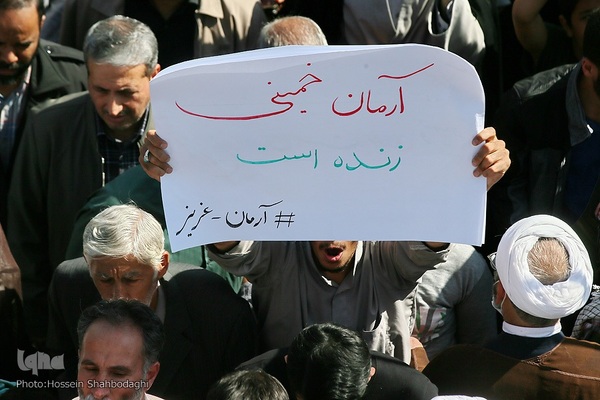 آرمان خمینی
زنده است
# آرمان-عزیز
iqna
Photo:Hossein Shahbodaghi